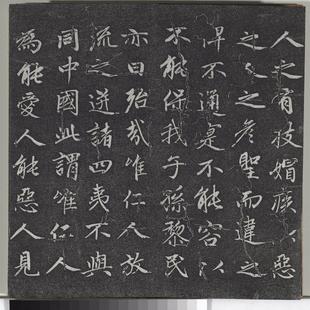 人之有技媢疾以惡
之人之彥聖而違之
俾不通寔不能容以
不能保我子孫黎民
亦曰殆哉唯仁人放
流之迸諸四夷不與
同中國此謂唯仁人
為能愛人能惡人見